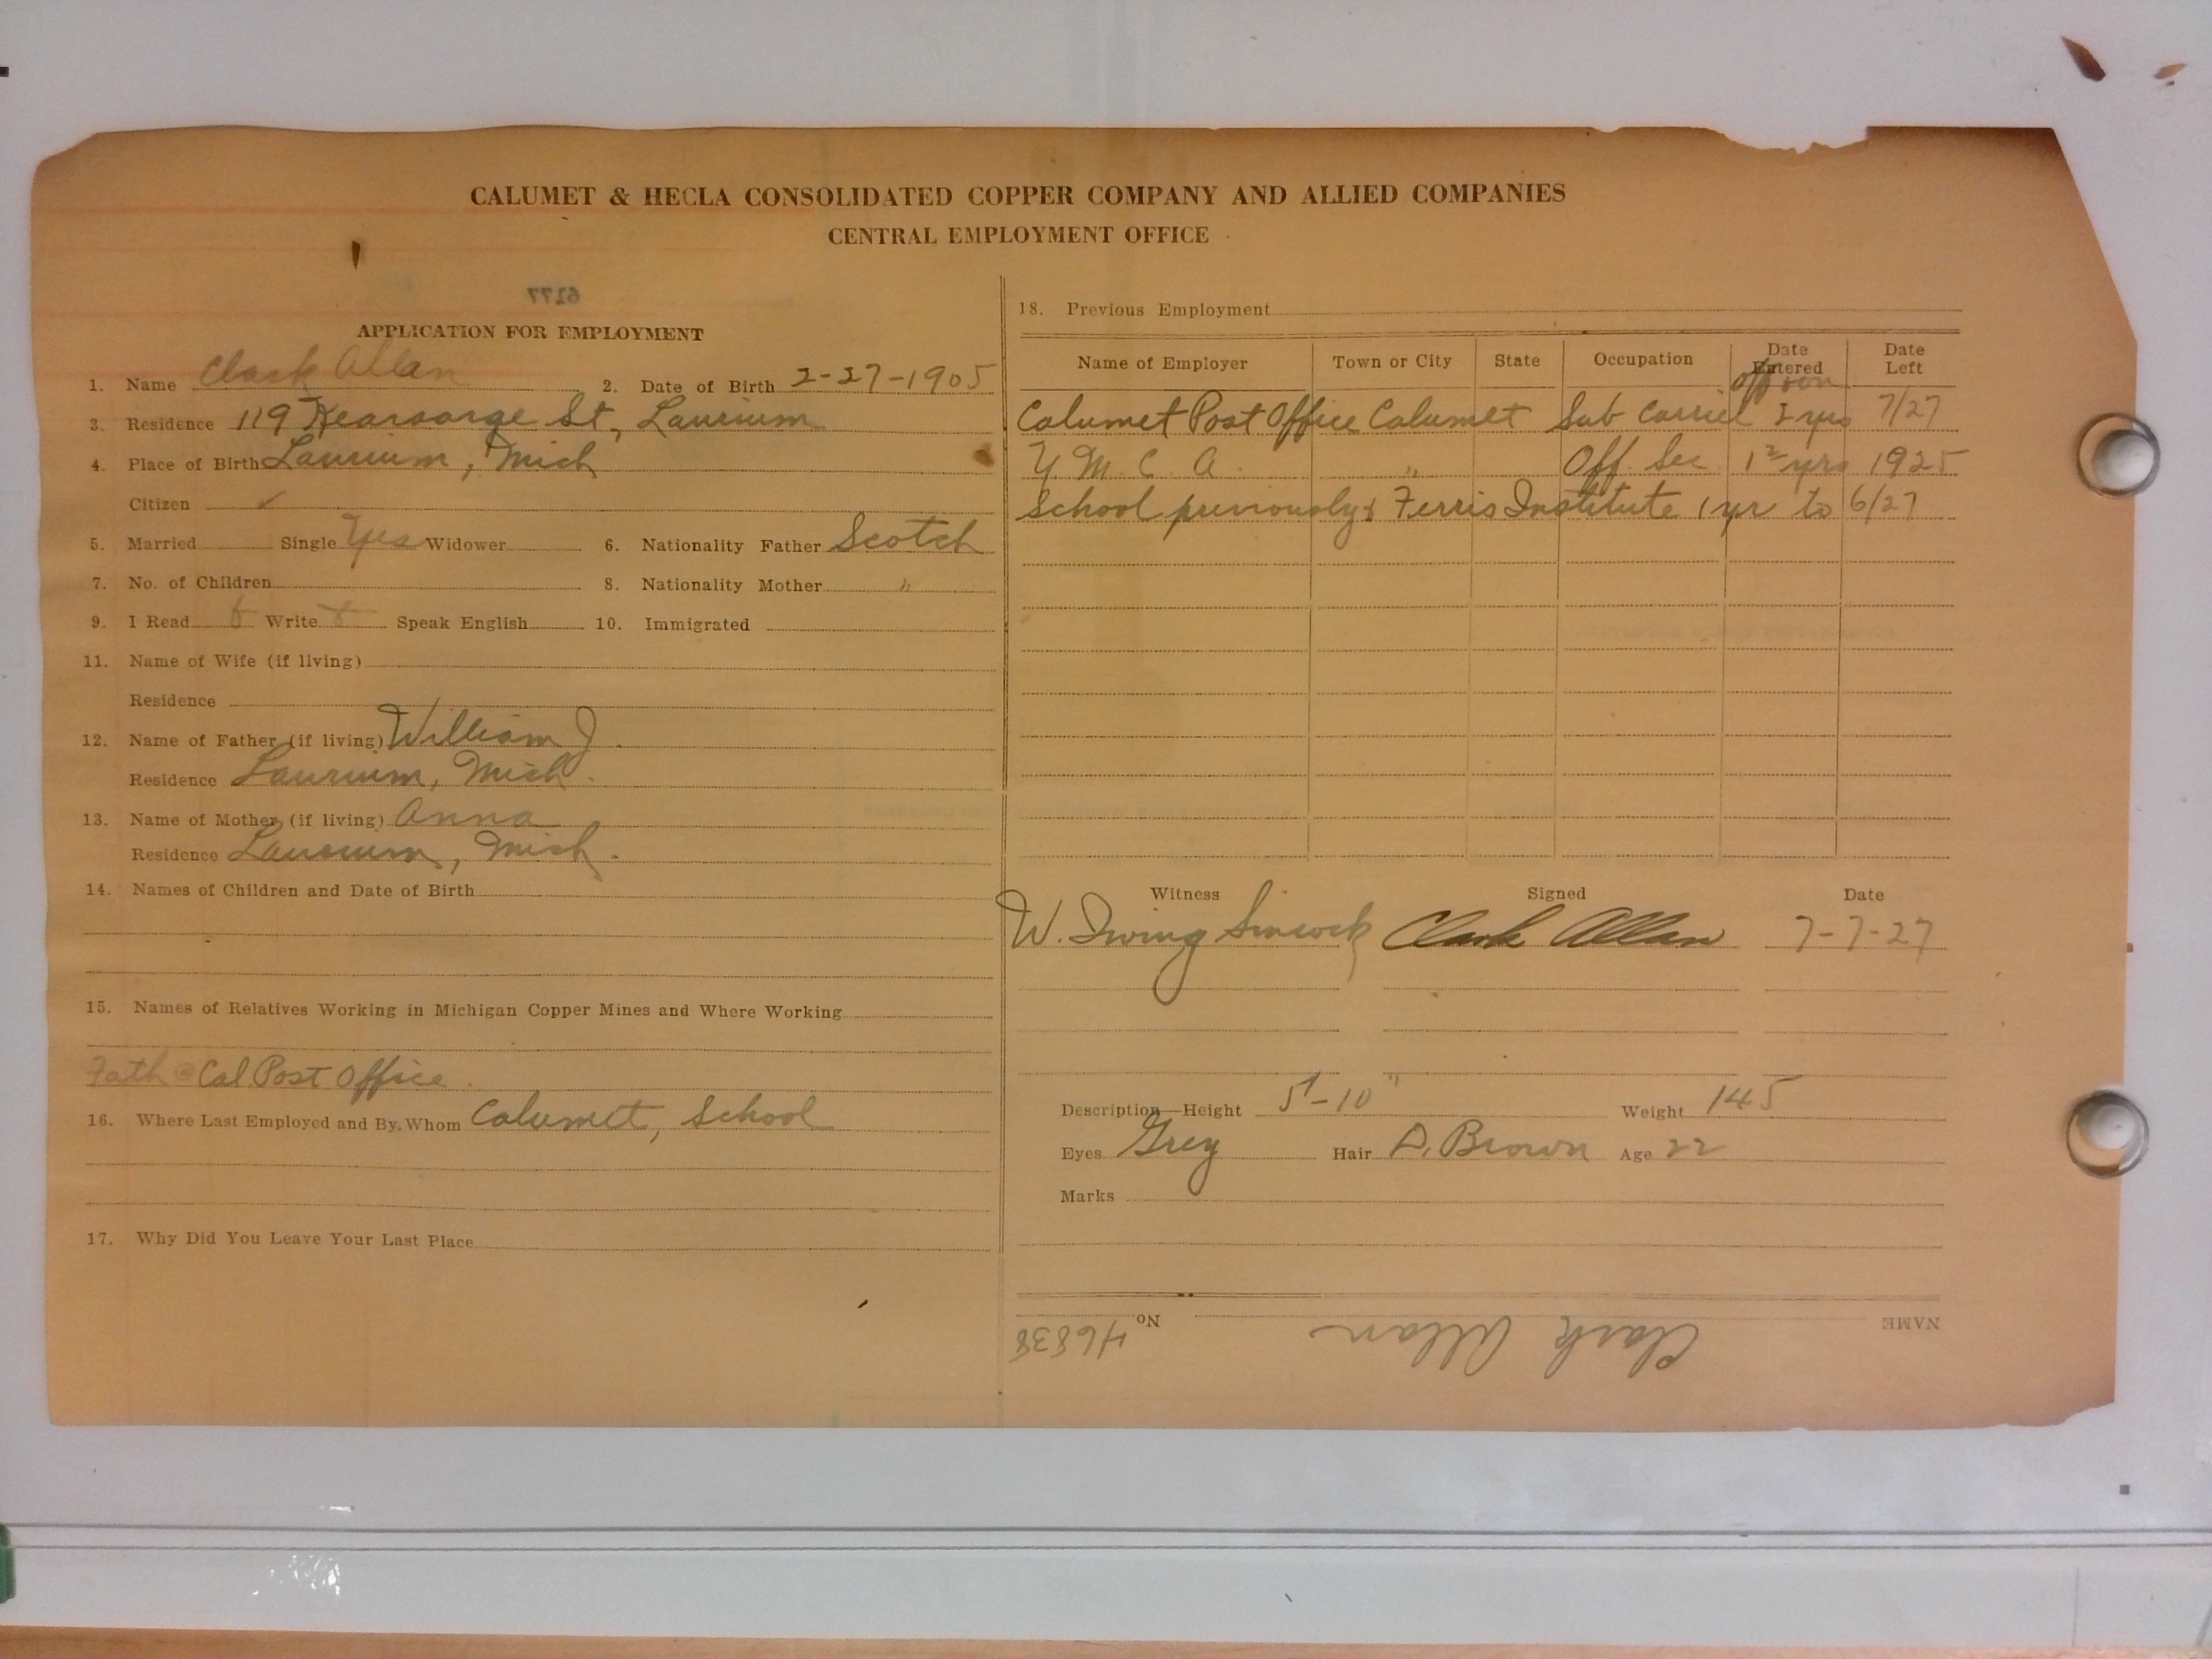 CALUMET & HECLA CONSOLIDATED COPPER COMPANY AND ALLIED COMPANIES
CENTRAL EMPLOYMENT OFFICE
6177
APPLICATION FOR EMPLOYMENT
1. Name Clark Allan 2. Date of Birth 2-27-1905
3. Residence 119 Kearsarge St, Laurium
4. Place of Birth Laurium, Mich
Citizen ✓
5. Married Single Yes Widower 6. Nationality Father Scotch
7. No. of Children 8. Nationality Mother "
9. I Read Write Speak English 10. Immigrated
11. Name of Wife (if living)
Residence
12. Name of Father (if living) William J.
Residence Laurium, Mich.
13. Name of Mother (if living) Anna
Residence Laurium, Mich.
14. Names of Children and Date of Birth
15. Names of Relatives Working in Michigan Copper Mines and Where Working
Fath @ Cal Post Office.
16. Where Last Employed and By Whom Calumet, School
17. Why Did You Leave Your Last Place
18. Previous Employment
Name of Employer Town or City State Occupation Date Entered Date Left
off & on
Calumet Post Office Calumet Sub Carrier 2 yrs 7/27
Y. M. C. A. " Off. Sec. 1 yrs 1925
School previously & Ferris Institute 1 yr to 6/27
Witness Signed Date
W. Irving Sincock Clark Allan 7-7-27
Description—Height 5'-10" Weight 145
Eyes Grey Hair D. Brown Age 22
Marks
NAME Clark Allan No. 46838